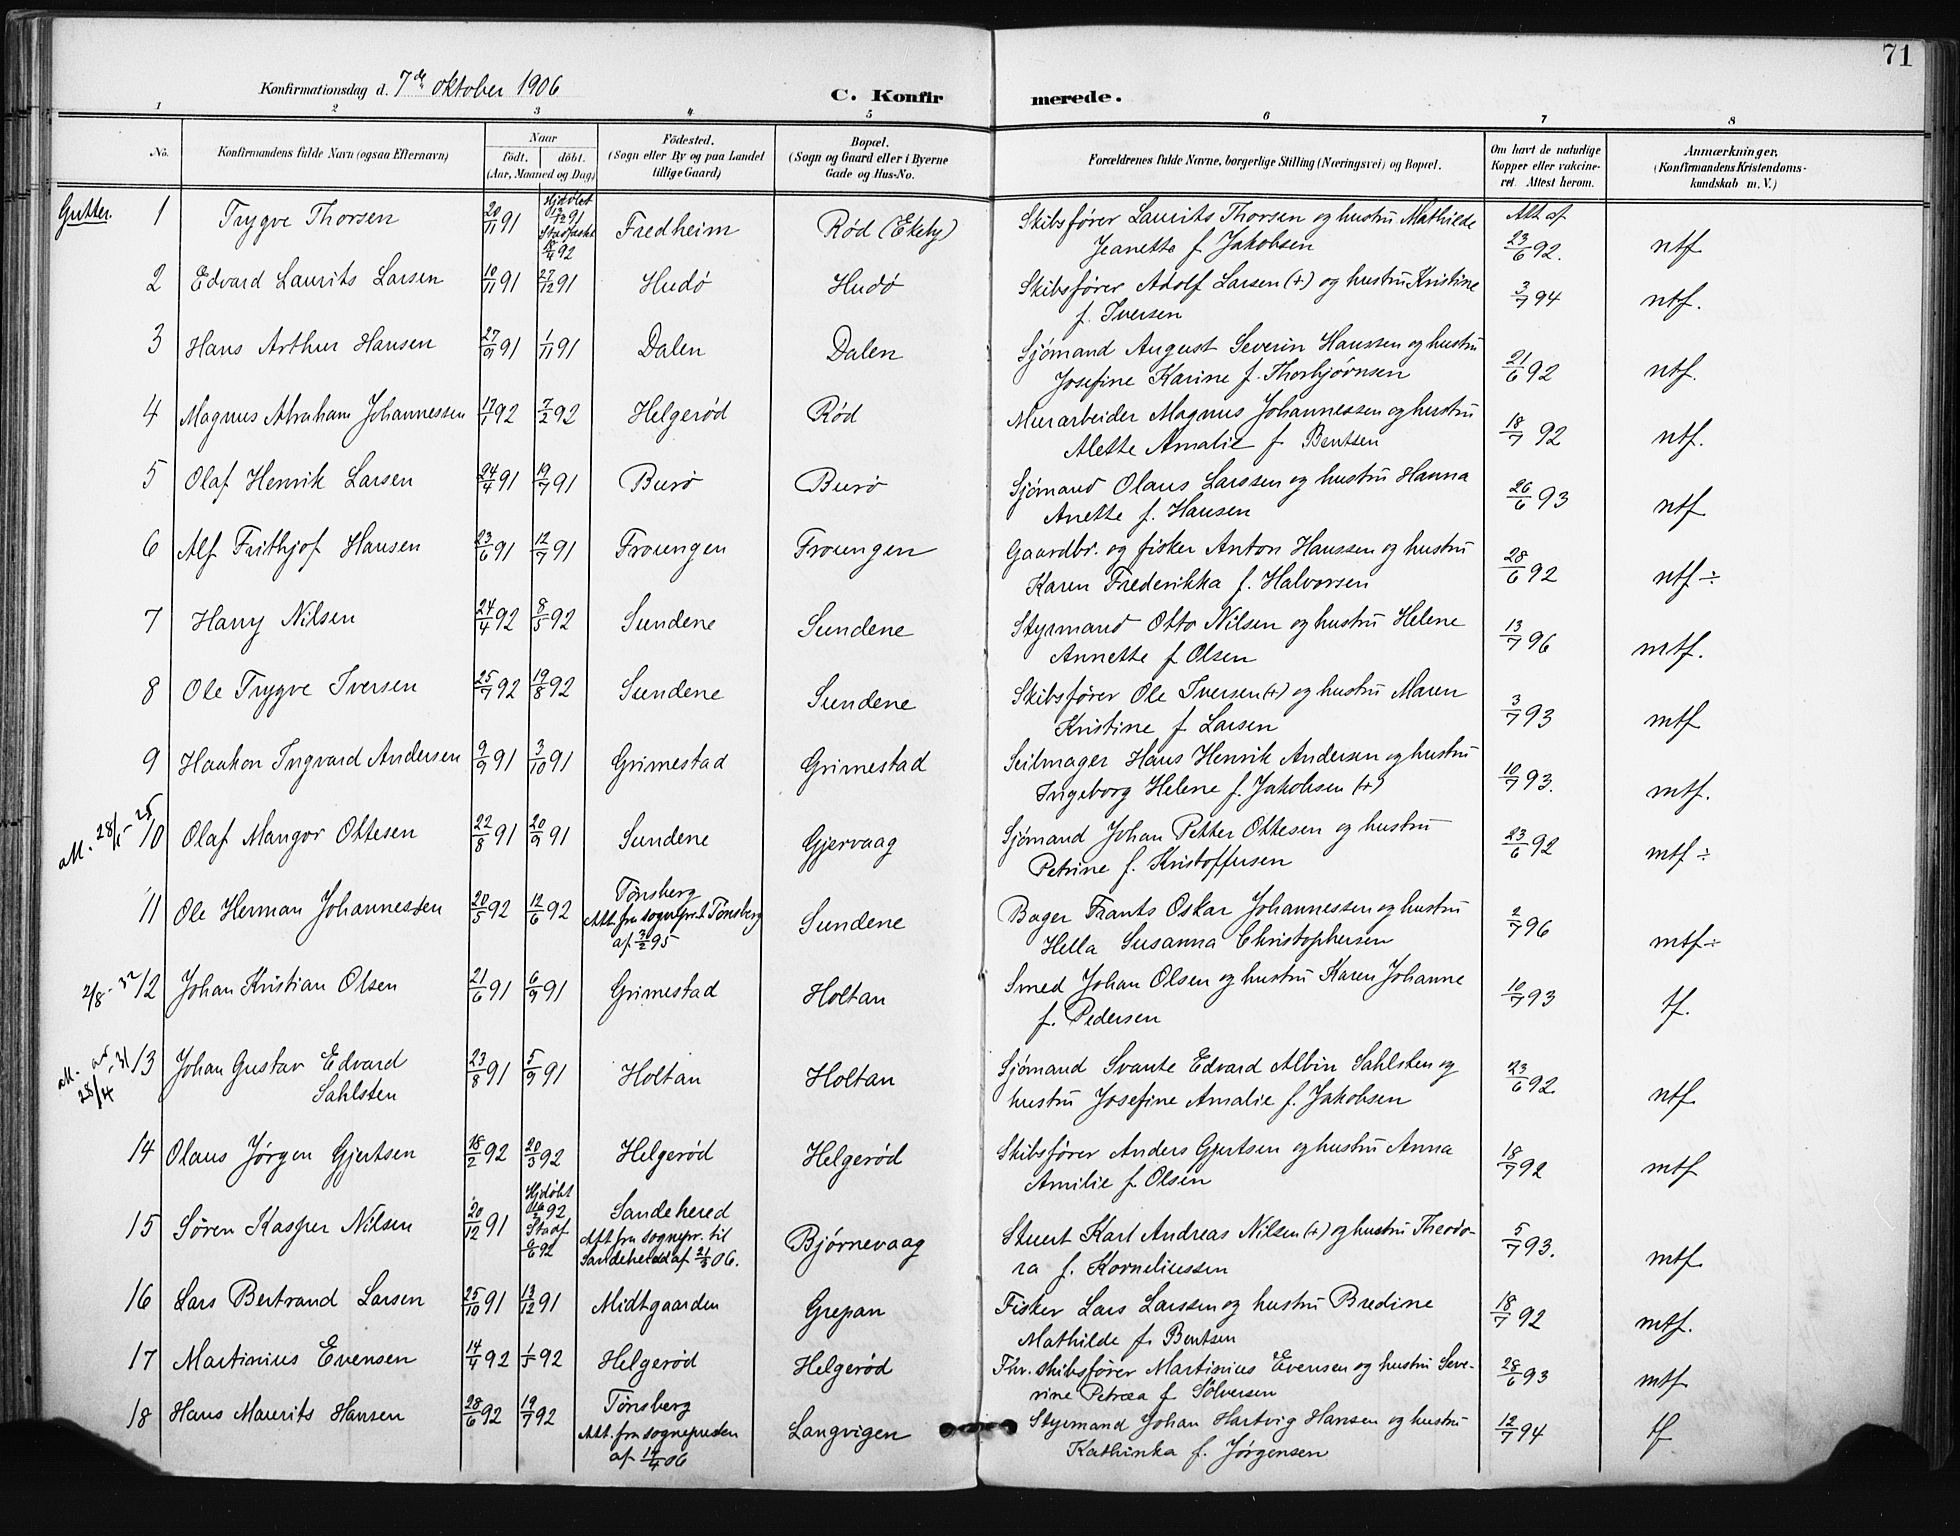 71
Konfirmationsdag d. 7de oktober 1906
C. Konfir merede.
1 2 3 4 5 6 7 8
No. Konfirmandens fulde Navn (ogsaa Efternavn) Naar født. døbt. (Aar, Maaned og Dag) Fødested. (Sogn eller By og paa Landet tillige Gaard) Bopæl. (Sogn og Gaard eller i Byerne Gade og Hus-No. Forældrenes fulde Navne, borgerlige Stilling (Næringsvei) og Bopæl. Om havt de naturlige Kopper eller vakcineret. Attest herom. Anmærkninger. (Konfirmandens Kristendomskundskab m. V.)
Gutter.
1 Trygve Thorsen 20/11 91 Hjdøbt 91 Stadfæstet 18/4 92 Fredheim Rød (Ekeby) Skibsfører Laurits Thorsen og hustru Mathilde Att af
Jeanette f. Jakobsen 23/6 92. ntf
2 Edvard Laurits Larsen 10/11 91 27/12 91 Hudø Hudø Skibsfører Adolf Larsen (+) og hustru Kristine 3/7 94 ntf.
f. Iversen
3 Hans Arthur Hansen 27/9 91 1/11 91 Dalen Dalen Sjømand August Severin Hanssen og hustru
Josefine Karine f. Thorbjörnsen 21/6 92 ntf.
4 Magnus Abraham Johannessen 17/1 92 7/2 92 Helgerød Rød Murarbeider Magnus Johannessen og hustru
Alette Amalie f. Bentsen 18/7 92 ntf.
5 Olaf Henrik Larsen 24/4 91 19/7 91 Burø Burø Sjømand Olaus Larssen og hustru Hanna
Anette f. Hansen 26/6 93 ntf
6 Alf Frithjof Hansen 23/6 91 12/7 91 Froungen Froungen Gaardbr. og fisker Anton Hanssen og hustru
Karen Frederikka f. Halvorsen 28/6 92 ntf ÷
7 Harry Nilsen 24/4 92 8/5 92 Sundene Sundene Styrmand Otto Nilsen og hustru Helene
Annette f Olsen 13/7 96 mtf.
8 Ole Trygve Iversen 25/7 92 19/8 92 Sundene Sundene Skibsfører Ole Iversen (+) og hustru Maren
Kristine f. Larsen 3/7 93 mtf
9 Haakon Ingvard Andersen 9/9 91 3/10 91 Grimestad Grimestad Seilmager Hans Henrik Andersen og hustru
Ingeborg Helene f. Jakobsen (+) 10/7 93. mtf.
10 Olaf Mangor Ottesen 22/8 91 20/9 91 Sundene Gjervaag Sjømand Johan Petter Ottesen og hustru
Petrine f. Kristoffersen 23/6 92 mtf ÷
11 Ole Herman Johannessen 20/5 92 12/6 92 Tønsberg Att. fra sognepr. i Tønsberg af 3/2 95 Sundene Bager Frants Oskar Johannessen og hustru
Hella Susanna Christophersen 2/7 96 mtf÷
2/8 - 32 12 Johan Kristian Olsen 21/6 91 6/9 91 Grimestad Holtan Smed Johan Olsen og hustru Karen Johanne
f. Pedersen 10/7 93 tf.
28/4 31 13 Johan Gustav Edvard Sahlsten 23/8 91 5/9 91 Holtan Holtan Sjømand Svante Edvard Albin Sahlsten og
hustru Josefine Amalie f. Jakobsen 23/6 92. ntf.
14 Olaus Jørgen Gjertsen 18/2 92 20/3 92 Helgerød Helgerød Skibsfører Anders Gjertsen og hustru Anna
Amilie f. Olsen 18/7 92 mtf
15 Søren Kasper Nilsen 20/12 91 Hjdøbt 92 Stadf 6/6 92 Sandehered Att fra sognepr. til Sandehered af 21/5 06. Bjørnevaag Stuert Karl Andreas Nilsen (+) og hustru Theodo-
ra f. Korneliussen 5/7 93. mtf.
16 Lars Bertrand Larsen 25/10 91 13/12 91 Midtgaarden Grepan Fisker Lars Larssen og hustru Bredine
Mathilde f. Bentsen 18/7 92 mtf.
17 Martinius Evensen 14/4 92 1/5 92 Helgerød Helgerød Fhv. skibsfører Martinius Evensen og hustru Seve-
rine Petræa f Sölversen 28/6 93 mtf
18 Hans Maurits Hansen 28/6 92 19/7 92 Tønsberg Att. fra sognepresten af 17/4 06 Langvigen Styrmand Johan Hartvig Hansen og hustru
Kathinka f. Jørgensen 12/7 94 tf